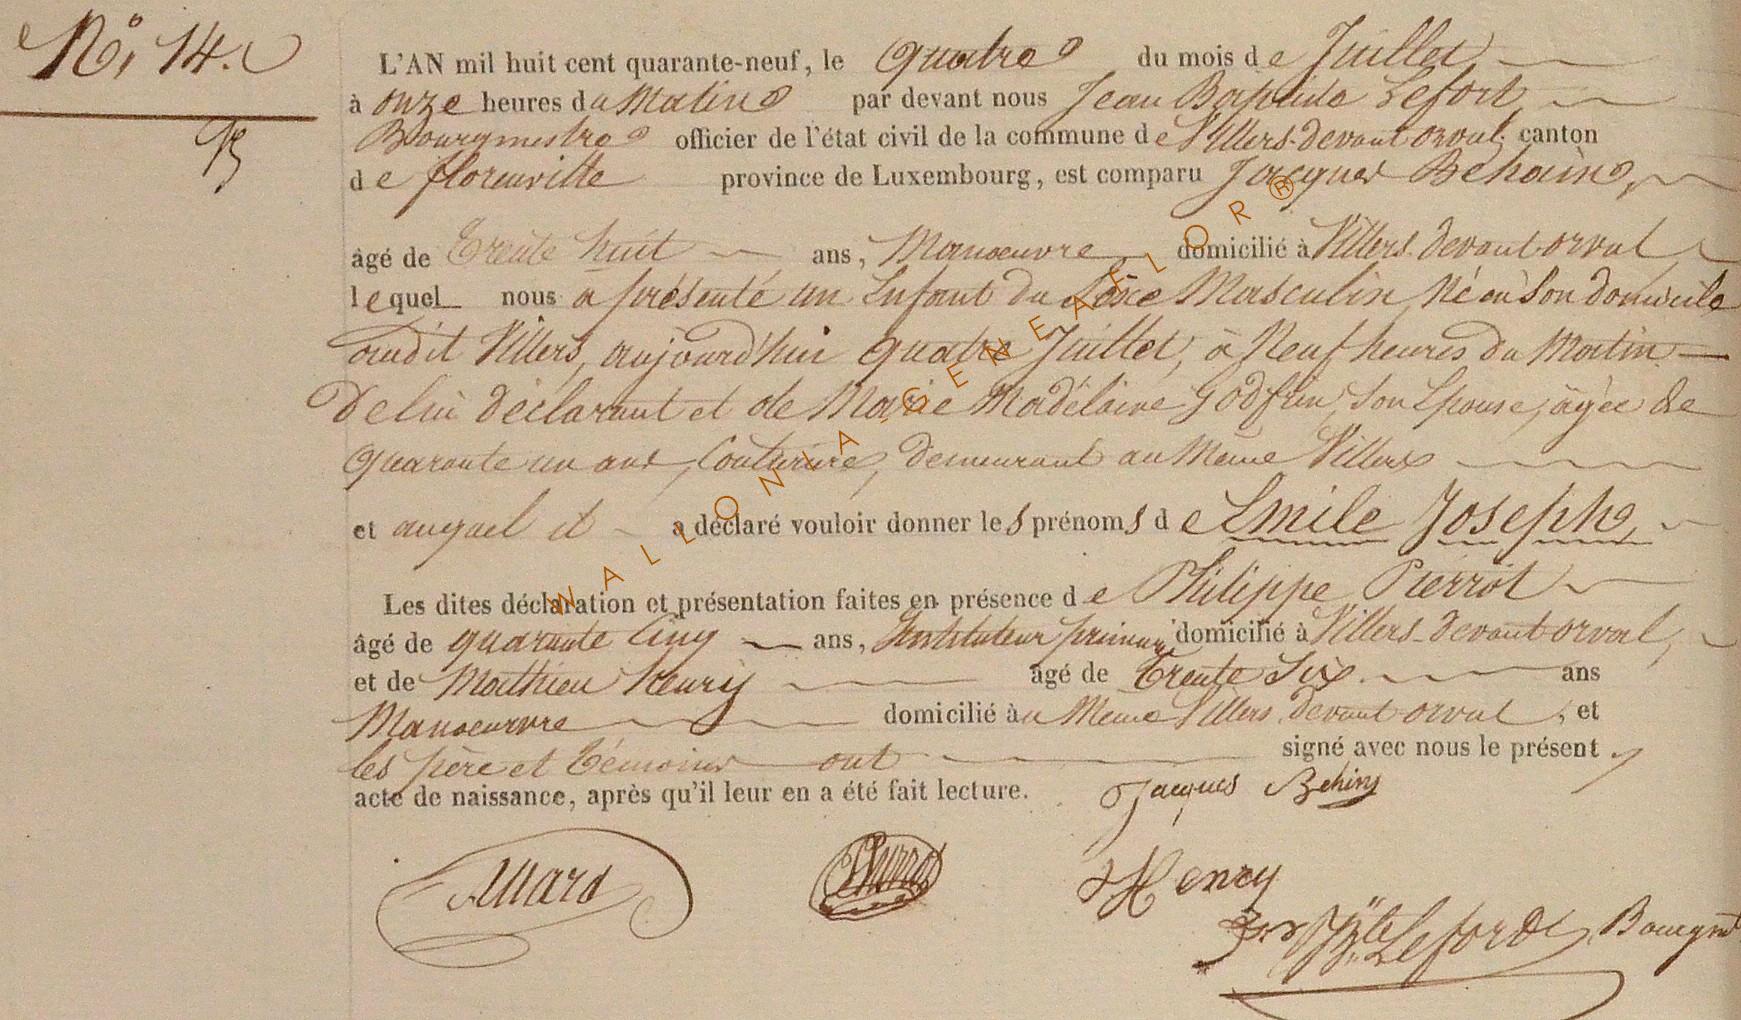 No. 14.
L'AN mil huit cent quarante-neuf, le quatre du mois de Juillet
à onze heures du Matin par devant nous Jean Baptiste Lefort
Bourgmestre officier de l'état civil de la commune de Villers-devant orval, canton
de florenville province de Luxembourg, est comparu Jacques Behain,
âgé de Trente huit ans, Manoeuvre domicilié à Villers devant orval
lequel nous a présenté un Enfant du Sexe Masculin, Né en Son domicile
audit Villers, aujourd'hui quatre Juillet, à Neuf heures du Matin
De lui déclarant et de Marie Madélaine Godfrin, Son Epouse, âgée de
Quarante un ans, Couturière, demeurant au Même Villers
et auquel il a déclaré vouloir donner les prénoms de Emile Joseph,
Les dites déclaration et présentation faites en présence de Philippe Pierrot
âgé de quarante Cinq ans, Instituteur primaire domicilié à Villers-devant orval,
et de Mathieu Henry âgé de Trente Six ans
Manoeuvre domicilié au Même Villers devant orval, et
les père et Témoins ont signé avec nous le présent
acte de naissance, après qu'il leur en a été fait lecture. Jacques Behin
Pierrot
Henry
Lefort Bourgm
WALLONIA GENEALOR®